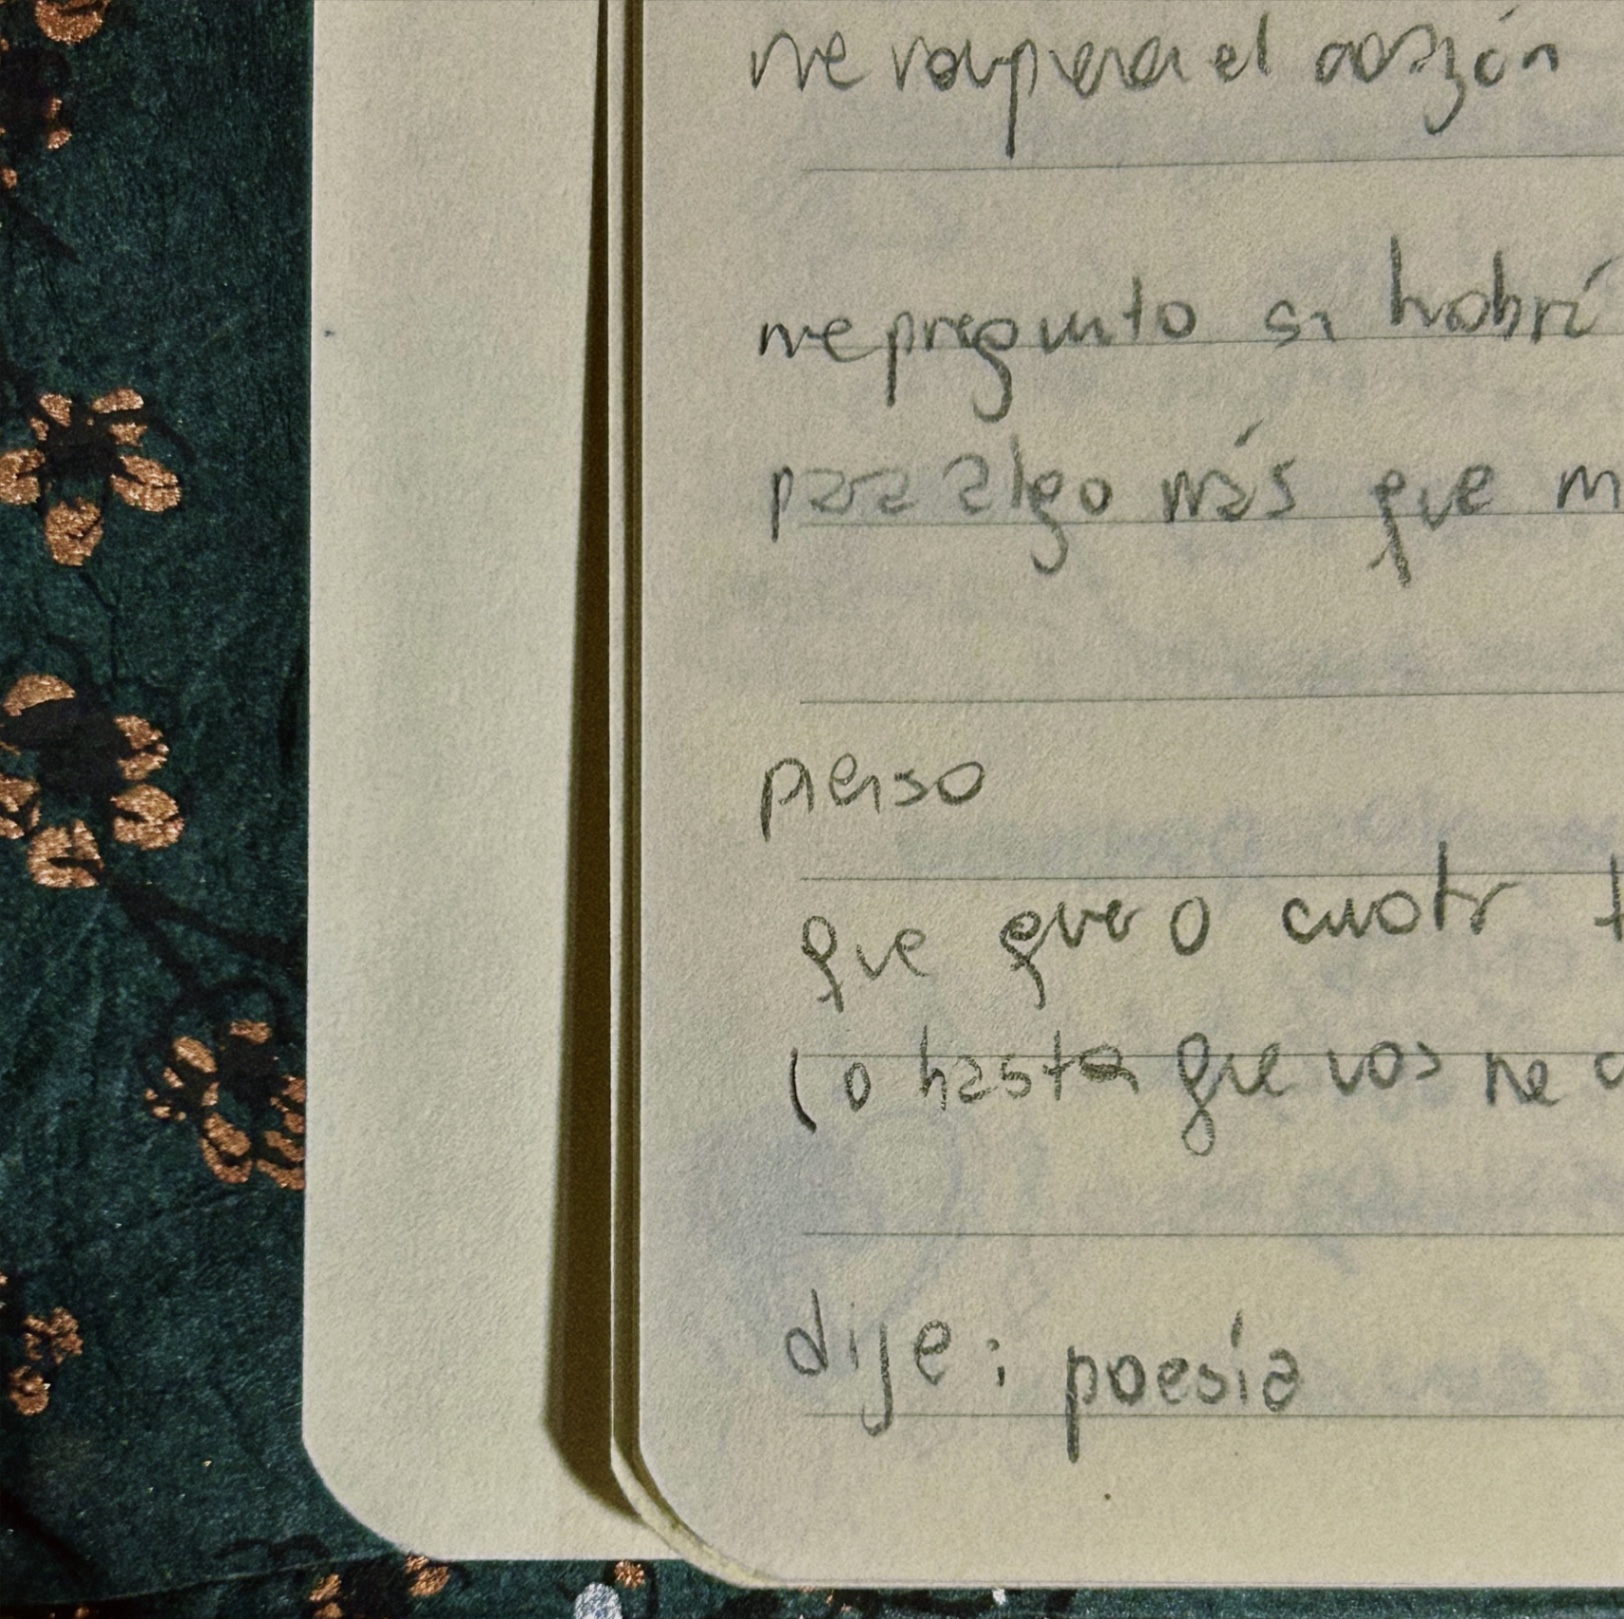 me rompiera el corazón
me pregunto si habrí
para algo más que m
pienso
que quiero
(o hasta que vos me
dije: poesía